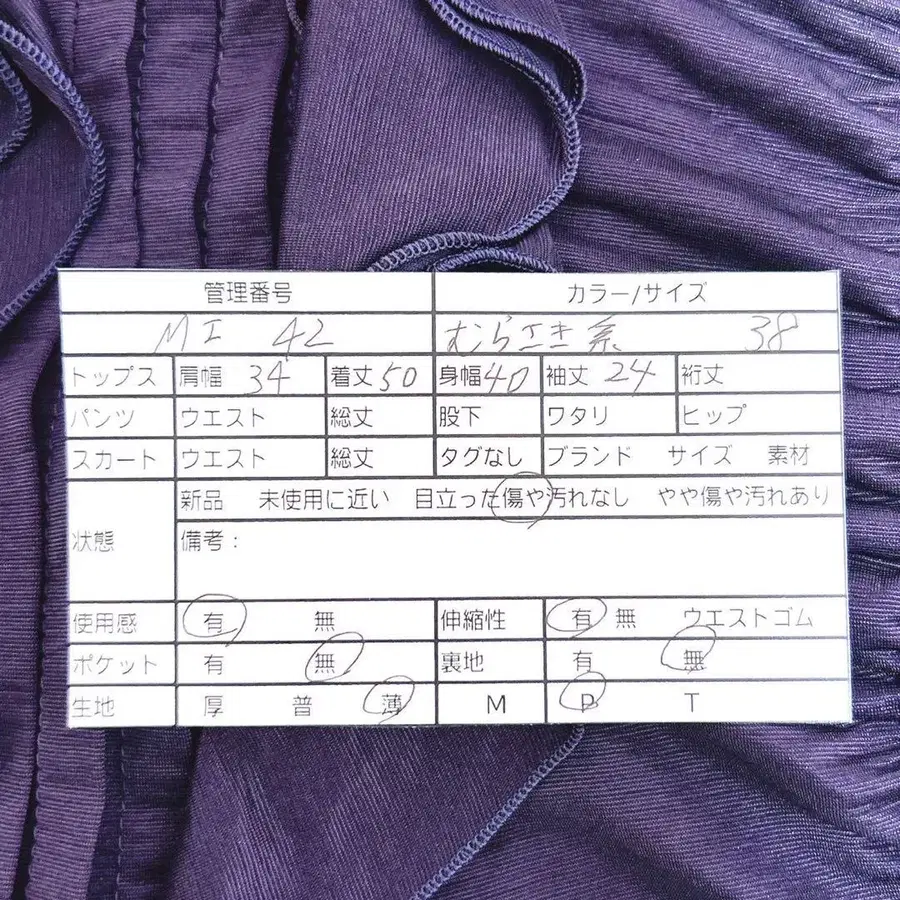 管理番号 カラー/サイズ
MI 42 むらさき系 38
トップス 肩幅 34 着丈 50 身幅 40 袖丈 24 裄丈
パンツ ウエスト 総丈 股下 ワタリ ヒップ
スカート ウエスト 総丈 タグなし ブランド サイズ 素材
状態 新品 未使用に近い 目立った傷や汚れなし やや傷や汚れあり
備考：
使用感 有 無 伸縮性 有 無 ウエストゴム
ポケット 有 無 裏地 有 無
生地 厚 普 薄 M P T